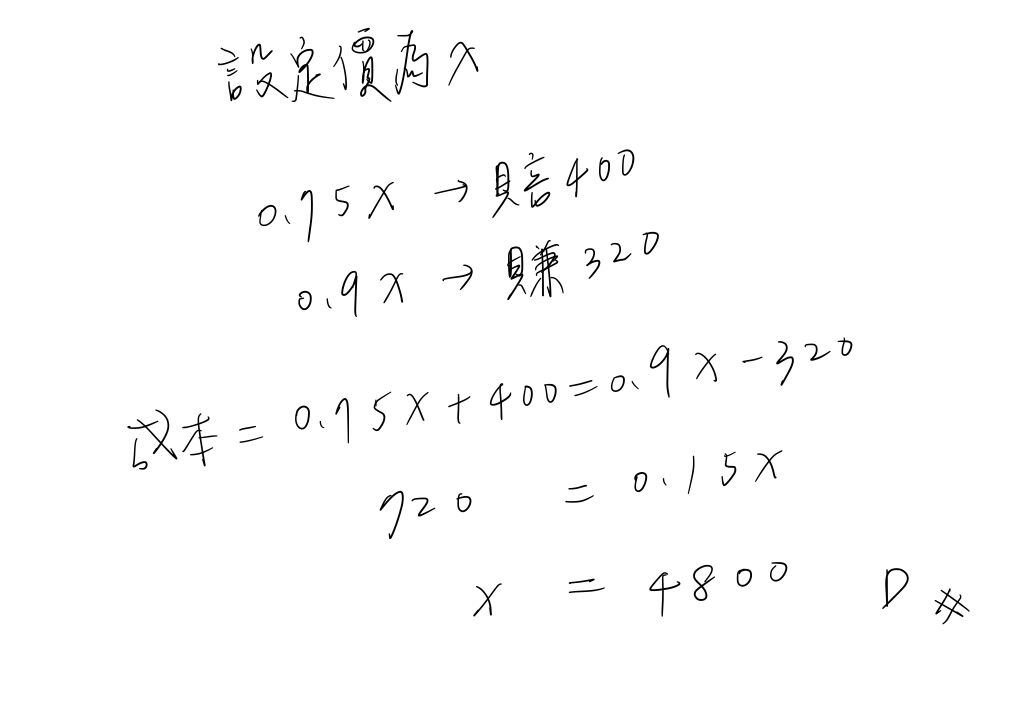 設定價為 x
0.75x → 賠400
0.9x → 賺320
成本 = 0.75x + 400 = 0.9x - 320
720 = 0.15x
x = 4800 D #